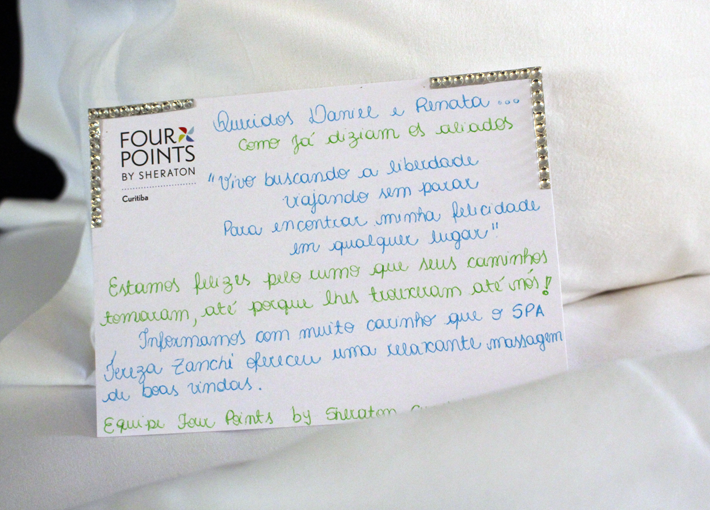 FOUR
POINTS
BY SHERATON
Curitiba
Queridos Daniel e Renata...
Como Já diziam os aliados
"Vivo buscando a liberdade
viajando sem parar
Para encontrar minha felicidade
em qualquer lugar"
Estamos felizes pelo rumo que seus caminhos
tomaram, até porque lhes trouxeram até nós!
Informamos com muito carinho que o SPA
Tereza Zanchi ofereceu uma relaxante massagem
de boas vindas.
Equipe Four Points by Sheraton